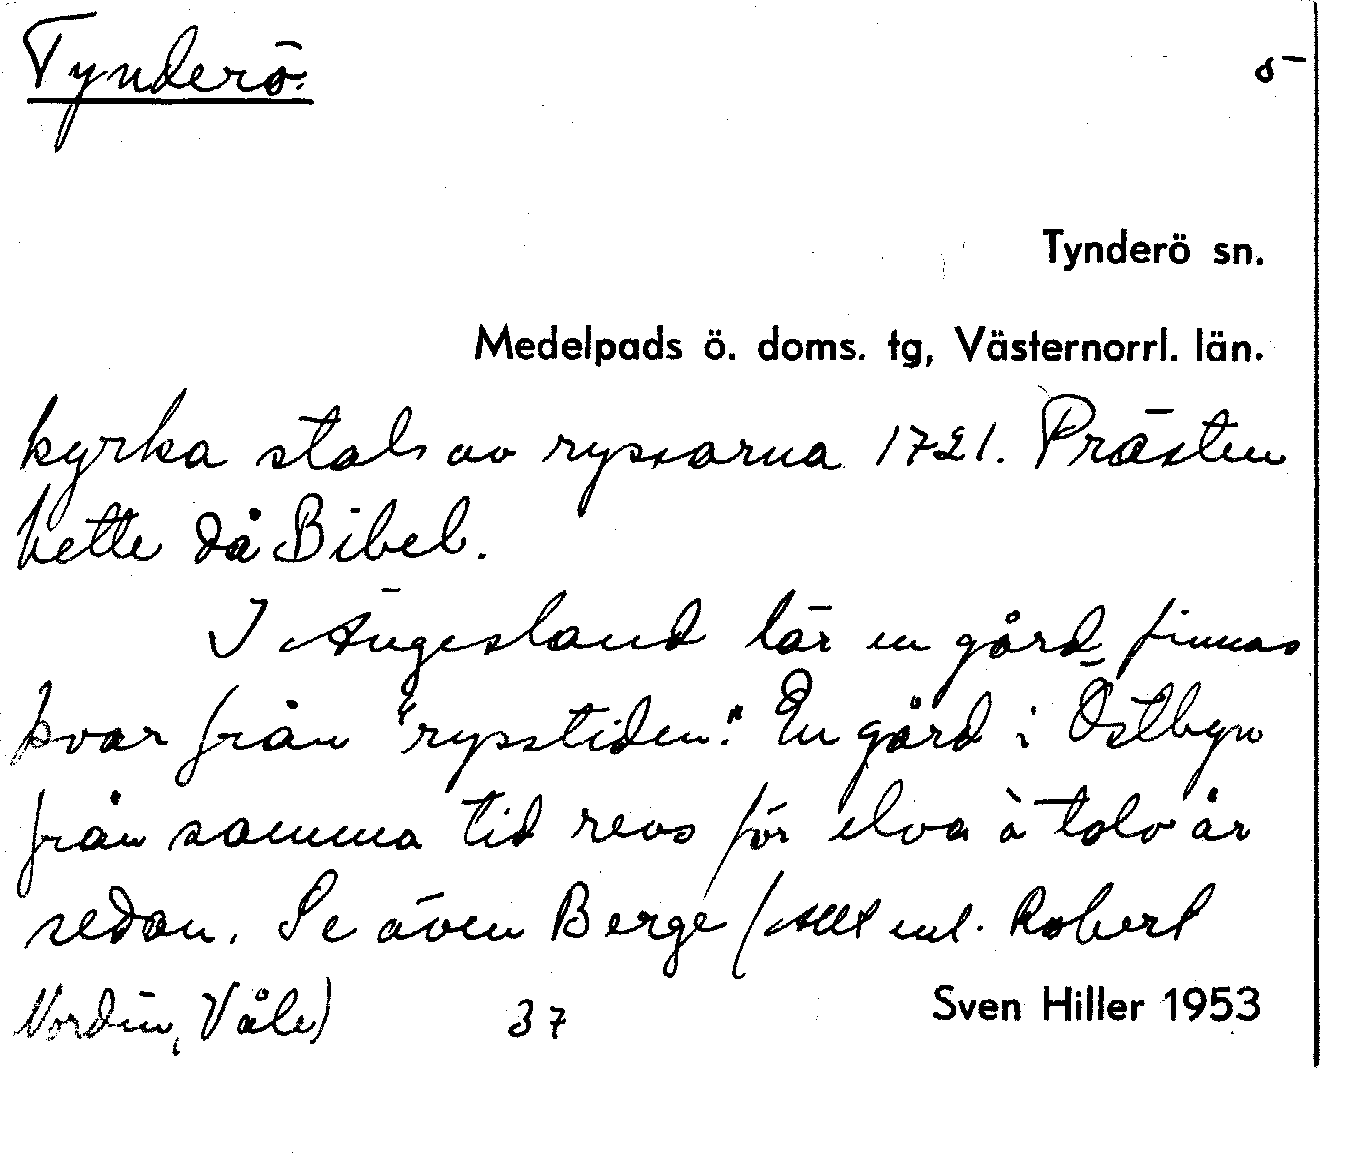 Tynderö. 5
Tynderö sn.
Medelpads ö. doms. tg, Västernorrl. län.
kyrka stals av ryssarna 1721. Prästen
hette då Bibel.
I Ängesland lär en gård finnas
kvar från "rysstiden". En gård i Östbyn
från samma tid revs för elva à tolv år
sedan. Se även Berge (Allt enl. Robert
Nordin, Våle) 37 Sven Hiller 1953